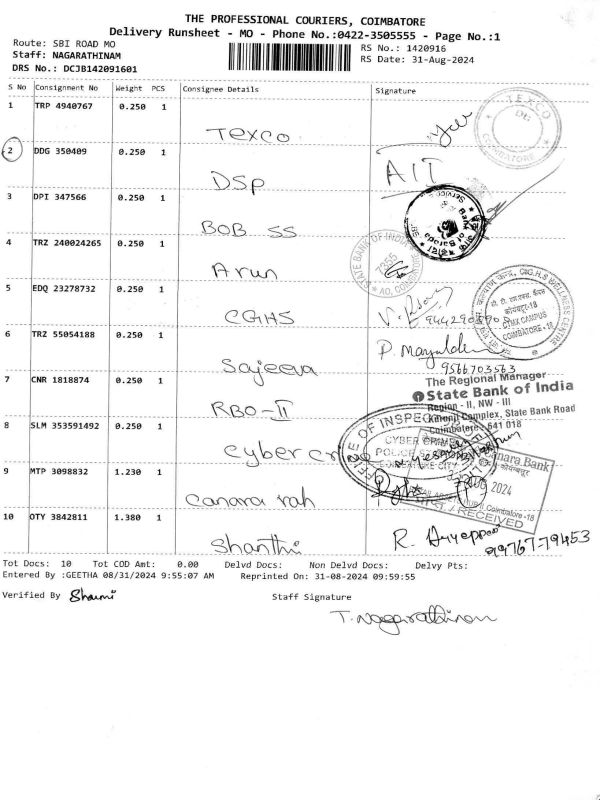 THE PROFESSIONAL COURIERS, COIMBATORE
Delivery Runsheet - MO - Phone No.:0422-3505555 - Page No.:1
Route: SBI ROAD MO
Staff: NAGARATHINAM
DRS No.: DCJB142091601
RS No.: 1420916
RS Date: 31-Aug-2024
S No Consignment No Weight PCS Consignee Details Signature
1 TRP 4940767 0.250 1
Texco
TEXCO
COIMBATORE
2 DDG 350409 0.250 1
DSP
AIT
3 DPI 347566 0.250 1
BOB SS
Bank of Baroda
4 TRZ 240024265 0.250 1
Arun
STATE BANK OF INDIA
7355
5 EDQ 23278732 0.250 1
CGHS
C.G.H.S WELLNESS CENTRE
CAMPUS
COIMBATORE-18
6 TRZ 55054188 0.250 1
Sajeeva
9566703563
7 CNR 1818874 0.250 1
RBO-II
The Regional Manager
State Bank of India
Region - II, NW - III
Complex, State Bank Road
Coimbatore - 641 018
8 SLM 353591492 0.250 1
Cyber
OFFICE OF INSPECTOR
CYBER CRIME
POLICE
COIMBATORE CITY
9 MTP 3098832 1.230 1
Canara
Canara Bank
2024
Coimbatore -18
RECEIVED
10 OTY 3842811 1.380 1
Shanthi
R.
99767-79453
Tot Docs: 10 Tot COD Amt: 0.00 Delvd Docs: Non Delvd Docs: Delvy Pts:
Entered By :GEETHA 08/31/2024 9:55:07 AM Reprinted On: 31-08-2024 09:59:55
Verified By
Staff Signature
T. Nagarathinam